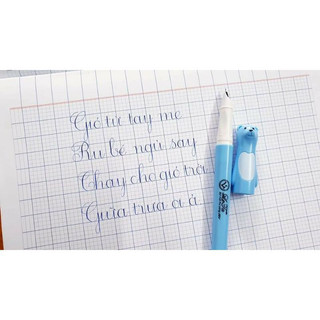 Gió từ tay mẹ
Ru bé ngủ say
Thay cho gió trời
Giữa trưa oi ả